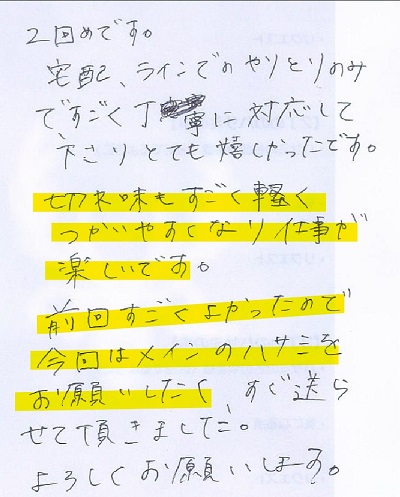 2回めです。
宅配、ラインでのやりとりのみ
ですごく丁寧に対応して
下さりとても嬉しかったです。
切れ味もすごく軽く
つかいやすくなり仕事が
楽しいです。
前回すごくよかったので
今回はメインのハサミを
お願いしたく すぐ送ら
せて頂きました。
よろしくお願いします。